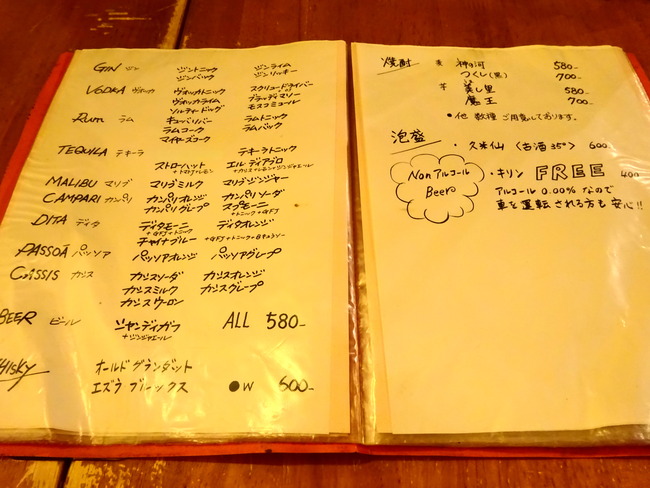 GIN ジン ジントニック ジンライム
ジンバック ジンリッキー
VODKA ヴォッカ ヴォッカトニック スクリュードライバー
ヴォッカライム ブラッディマリー
ソルティードッグ モスコミュール
Rum ラム キューバリバー ラムトニック
ラムコーク ラムバック
マイヤーズコーク
TEQUILA テキーラ テキーラトニック
ストローハット エルディアブロ
+トマトJ+レモン +カシス+レモン+ジンジャエール
MALIBU マリブ マリブミルク マリブジンジャー
CAMPARI カンパリ カンパリオレンジ カンパリソーダ
カンパリグレープ スプモーニ
+トニック+GFJ
DITA ディタ ディタモーニ ディタオレンジ
+GFJ+トニック
チャイナブルー
PASSOÃ パッソア パッソアオレンジ パッソアグレープ
CASSIS カシス カシスソーダ カシスオレンジ
カシスミルク カシスグレープ
カシスウーロン
BEER ビール シャンディガフ ALL 580-
+ジンジャエール
HISKY オールドグランダット
エズラブルックス ●W 600-
焼酎 麦 神の河 580-
つくし(黒) 700-
芋 美し里 580-
魔王 700-
●他 数種ご用意しております。
泡盛 ・久米仙 〈古酒35°〉 600
Non アルコール
Beer ・キリン FREE 400
アルコール 0.00% なので
車を運転される方も安心!!